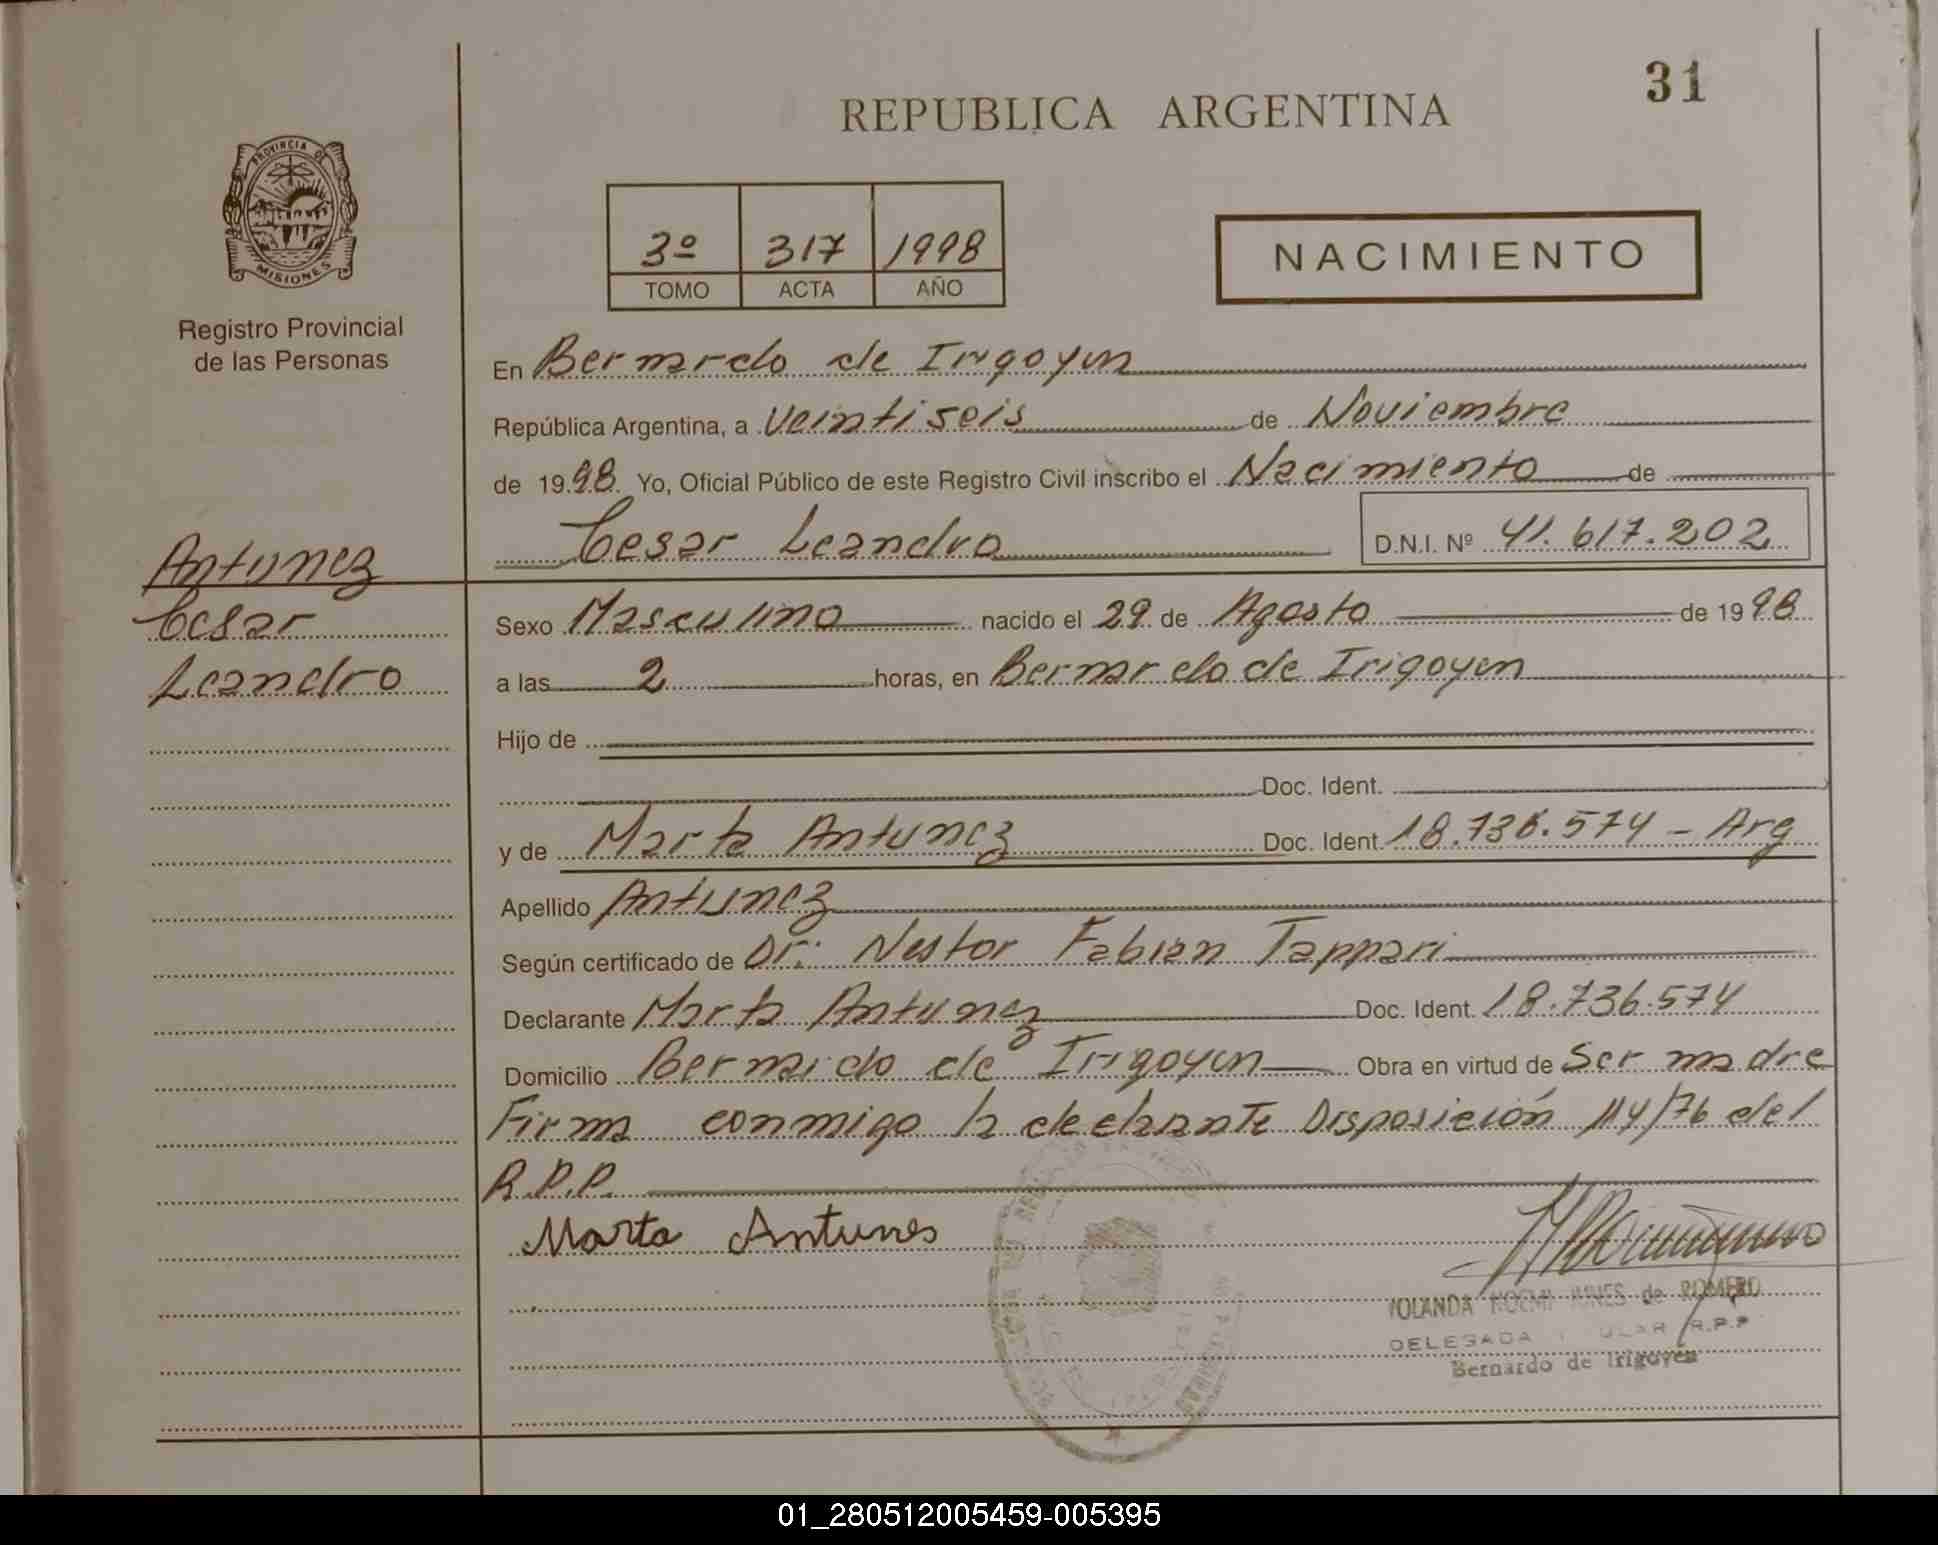 31
REPUBLICA ARGENTINA
PROVINCIA DE
MISIONES
Registro Provincial
de las Personas
3º 317 1998
TOMO ACTA AÑO
NACIMIENTO
En Bernardo de Irigoyen
República Argentina, a Veintiseis de Noviembre
de 1998 Yo, Oficial Público de este Registro Civil inscribo el Nacimiento de
Cesar Leandro D.N.I. Nº 41.617.202
Antunez
Cesar
Leandro
Sexo Masculino nacido el 29 de Agosto de 1998
a las 2 horas, en Bernardo de Irigoyen
Hijo de
Doc. Ident.
y de Marta Antunez Doc. Ident. 18.736.574 - Arg
Apellido Antunez
Según certificado de Dr: Nestor Fabian Tappari
Declarante Marta Antunez Doc. Ident. 18.736.574
Domicilio Bernardo de Irigoyen Obra en virtud de Ser madre
Firma conmigo la declarante Disposición 114/76 del
R.P.P.
Marta Antunes
YOLANDA NOEMI de ROMERO
DELEGADA R.P.P
Bernardo de Irigoyen
01_280512005459-005395